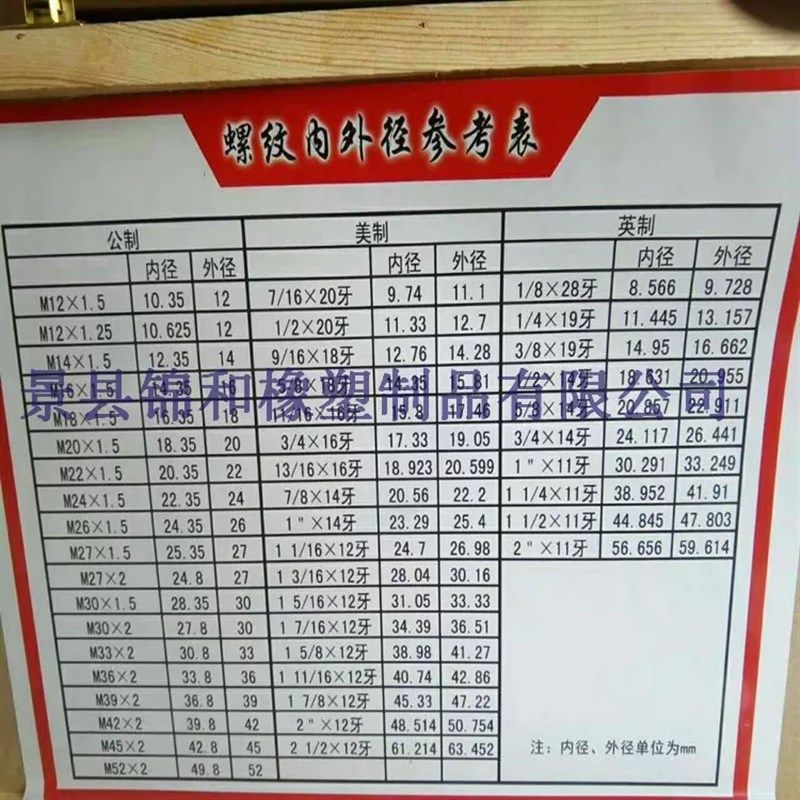 螺纹内外径参考表
公制 美制 英制
内径 外径 内径 外径 内径 外径
M12×1.5 10.35 12 7/16×20牙 9.74 11.1 1/8×28牙 8.566 9.728
M12×1.25 10.625 12 1/2×20牙 11.33 12.7 1/4×19牙 11.445 13.157
M14×1.5 12.35 14 9/16×18牙 12.76 14.28 3/8×19牙 14.95 16.662
M16×1.5 14.35 16 5/8×18牙 14.35 15.81 1/2×14牙 18.631 20.955
景县锦和橡塑制品有限公司
M18×1.5 16.35 18 11/16×16牙 15.8 17.46 5/8×14牙 20.857 22.911
M20×1.5 18.35 20 3/4×16牙 17.33 19.05 3/4×14牙 24.117 26.441
M22×1.5 20.35 22 13/16×16牙 18.923 20.599 1"×11牙 30.291 33.249
M24×1.5 22.35 24 7/8×14牙 20.56 22.2 1 1/4×11牙 38.952 41.91
M26×1.5 24.35 26 1"×14牙 23.29 25.4 1 1/2×11牙 44.845 47.803
M27×1.5 25.35 27 1 1/16×12牙 24.7 26.98 2"×11牙 56.656 59.614
M27×2 24.8 27 1 3/16×12牙 28.04 30.16
M30×1.5 28.35 30 1 5/16×12牙 31.05 33.33
M30×2 27.8 30 1 7/16×12牙 34.39 36.51
M33×2 30.8 33 1 5/8×12牙 38.98 41.27
M36×2 33.8 36 1 11/16×12牙 40.74 42.86
M39×2 36.8 39 1 7/8×12牙 45.33 47.22
M42×2 39.8 42 2"×12牙 48.514 50.754
M45×2 42.8 45 2 1/2×12牙 61.214 63.452 注：内径、外径单位为mm
M52×2 49.8 52